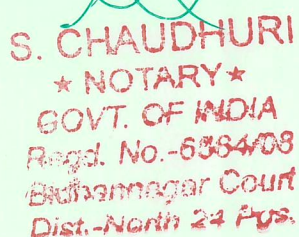 S. CHAUDHURI
★ NOTARY ★
GOVT. OF INDIA
Regd. No.-6564/08
Bidhannagar Court
Dist.-North 24 Pgs.